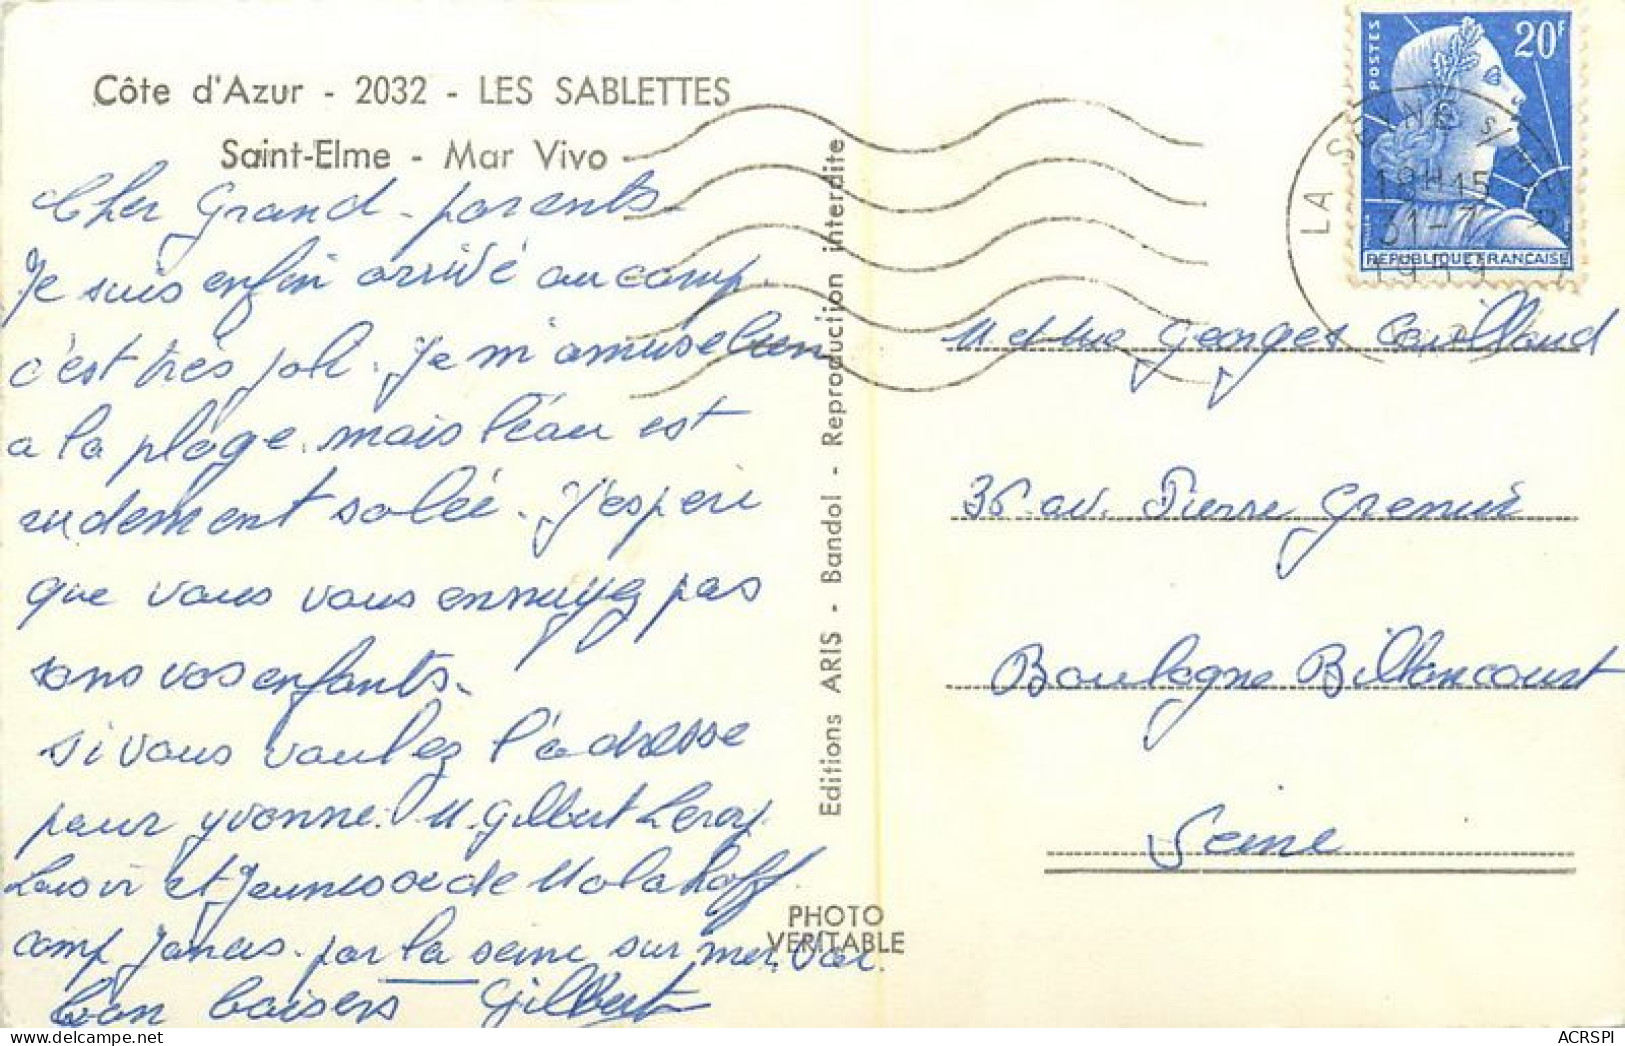 Côte d'Azur - 2032 - LES SABLETTES
Saint-Elme - Mar Vivo
Cher Grand-parents
Je suis enfin arrivé au camp.
c'est très joli. Je m'amuse bien
a la plage. mais l'éau est
rudement salée. J'esperé
que vous vous ennuyez pas
sans vos enfants.
si vous voulez l'adresse
pour yvonne. M. Gilbert Leroy
Loisir et Jeunesse de Malakoff
camp Janas. par la seine sur mer. Var.
bon baisers Gilbert
Editions ARIS - Bandol - Reproduction interdite
PHOTO
VERITABLE
POSTES
20F
REPUBLIQUE FRANÇAISE
LA SEYNE S/
18H15
31-7
1959
M et Mme Georges Caillaud
36 av. Pierre Grenier
Boulogne Billancourt
Seine
ACRSPI